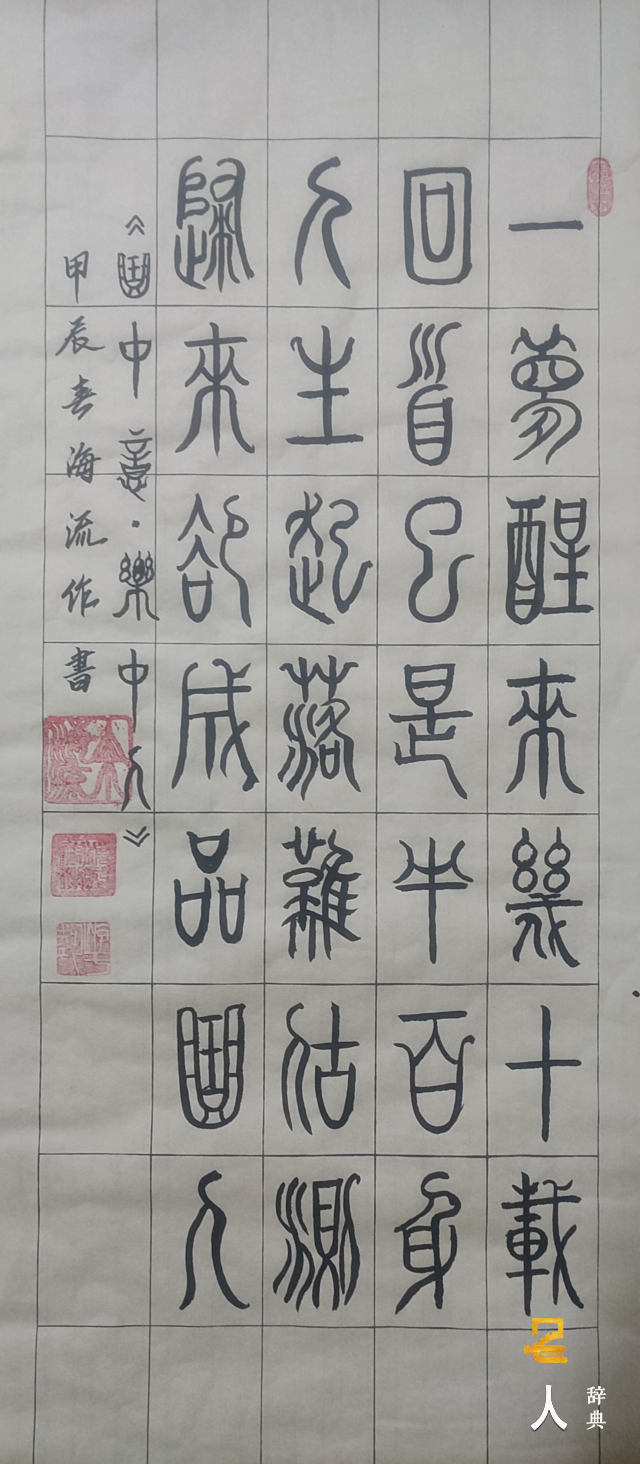 一夢醒來幾十載
回首已是半百身
人生起落難估測
歸來卻成品曲人
《曲中意·樂中人》
甲辰春海流作書
名人
辞典